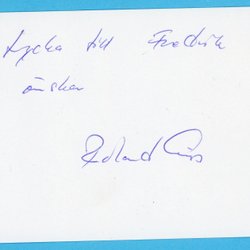 Lycka till Fredrik
önskar
Roland